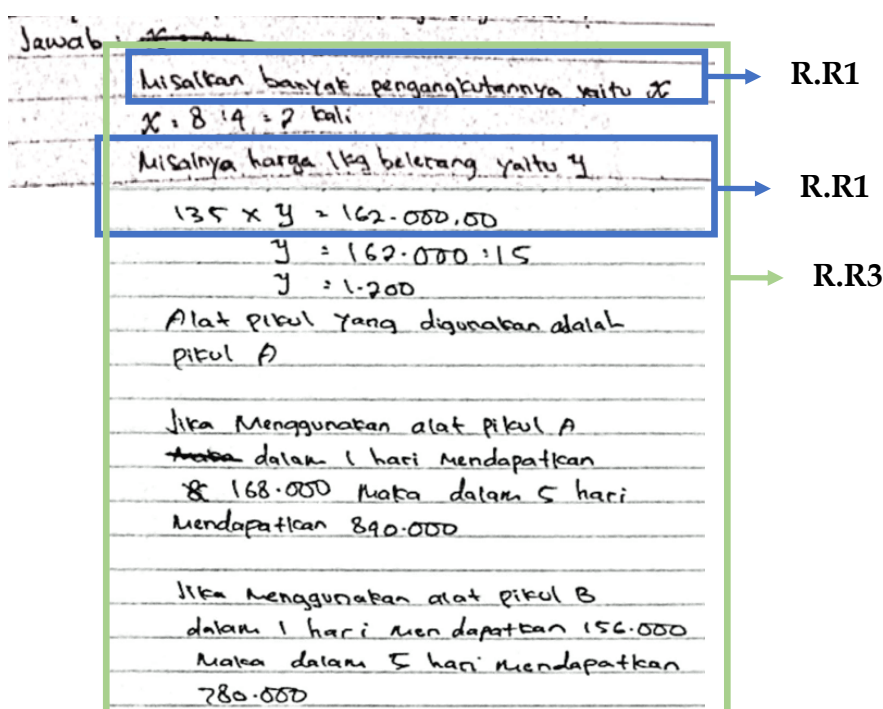 Jawab :
Misalkan banyak pengangkutannya yaitu x
R.R1
x = 8 : 4 = 2 kali
Misalnya harga 1kg belerang yaitu y
R.R1
135 x y = 162.000,00
y = 162.000 : 15
R.R3
y = 1.200
Alat pikul yang digunakan adalah
pikul A
Jika Menggunakan alat pikul A
dalam 1 hari mendapatkan
168.000 maka dalam 5 hari
Mendapatkan 840.000
Jika Menggunakan alat pikul B
dalam 1 hari mendapatkan 156.000
Maka dalam 5 hari mendapatkan
780.000